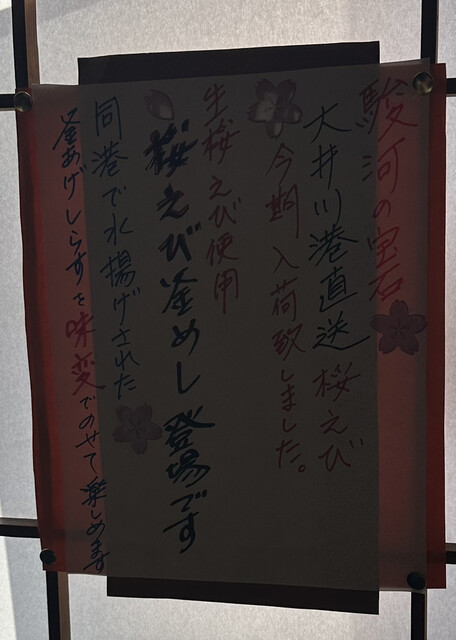 駿河の宝石
大井川港直送 桜えび
今期 入荷致しました。
生桜えび使用
桜えび釜めし 登場です
同港で水揚げされた
釜あげしらすを味変でのせて楽しめます